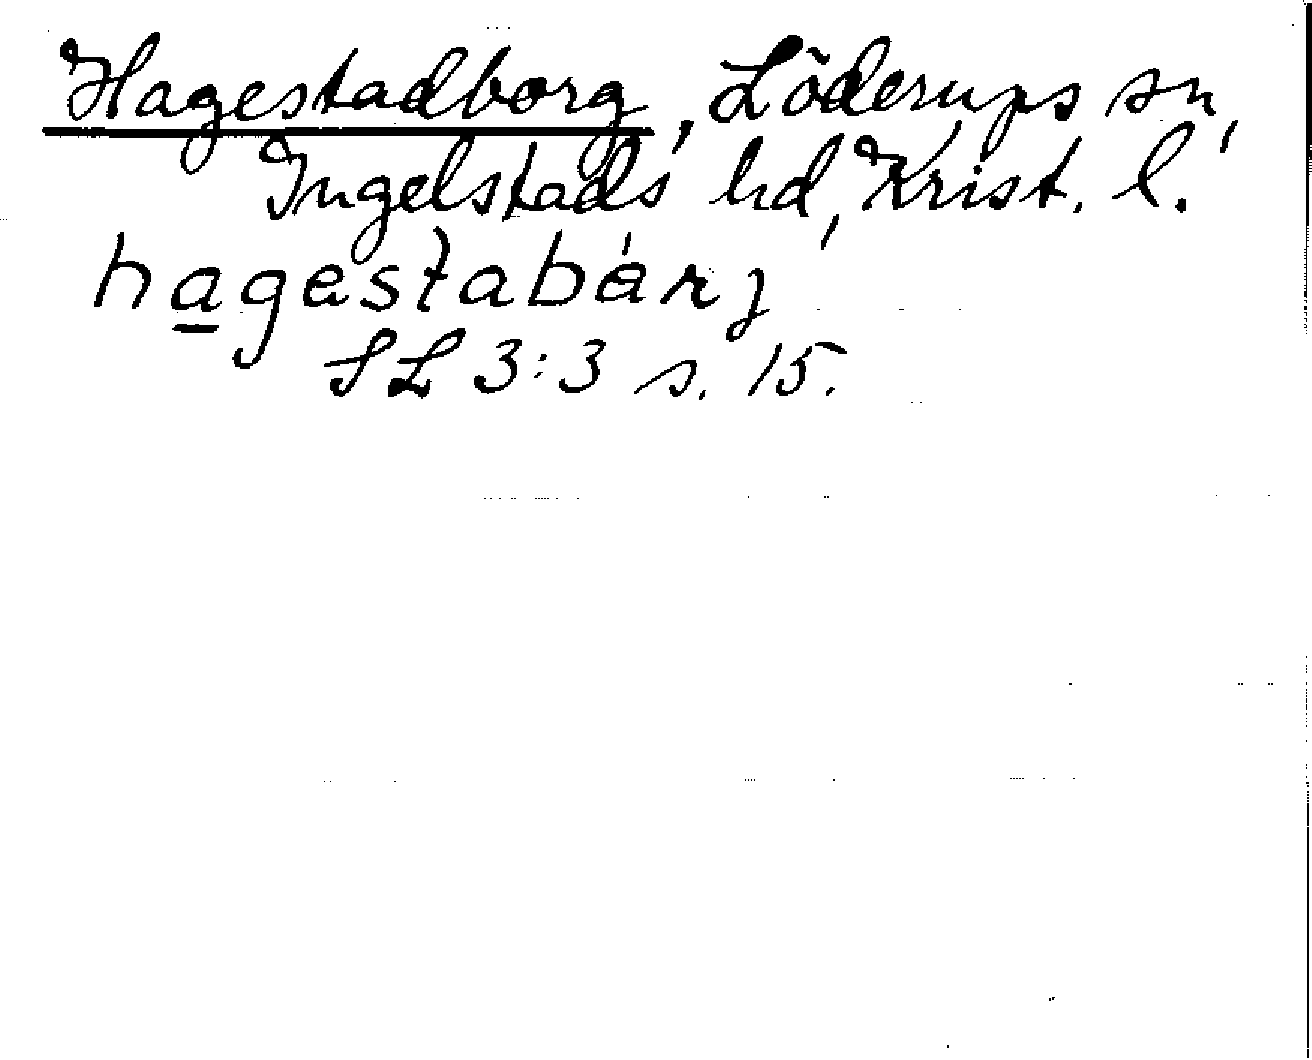 Hagestadborg, Löderups sn,
Ingelstads hd, Krist. l.
hagestabárj
SL 3:3 s. 15.